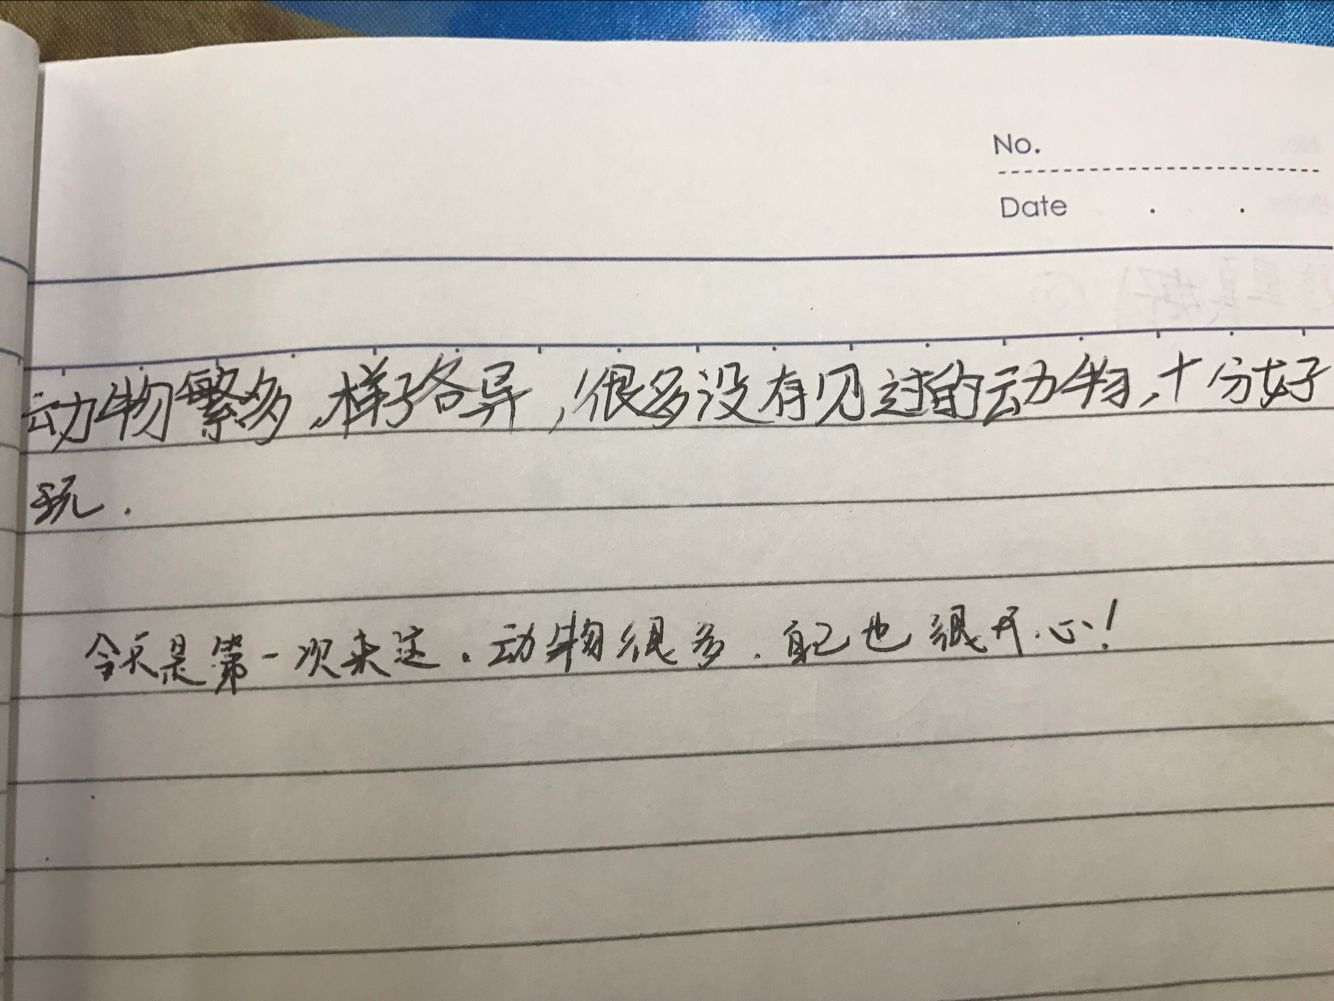 No.
Date . .
动物繁多,样子各异,很多没有见过的动物,十分好
玩.
今天是第一次来这.动物很多.自己也很开心!